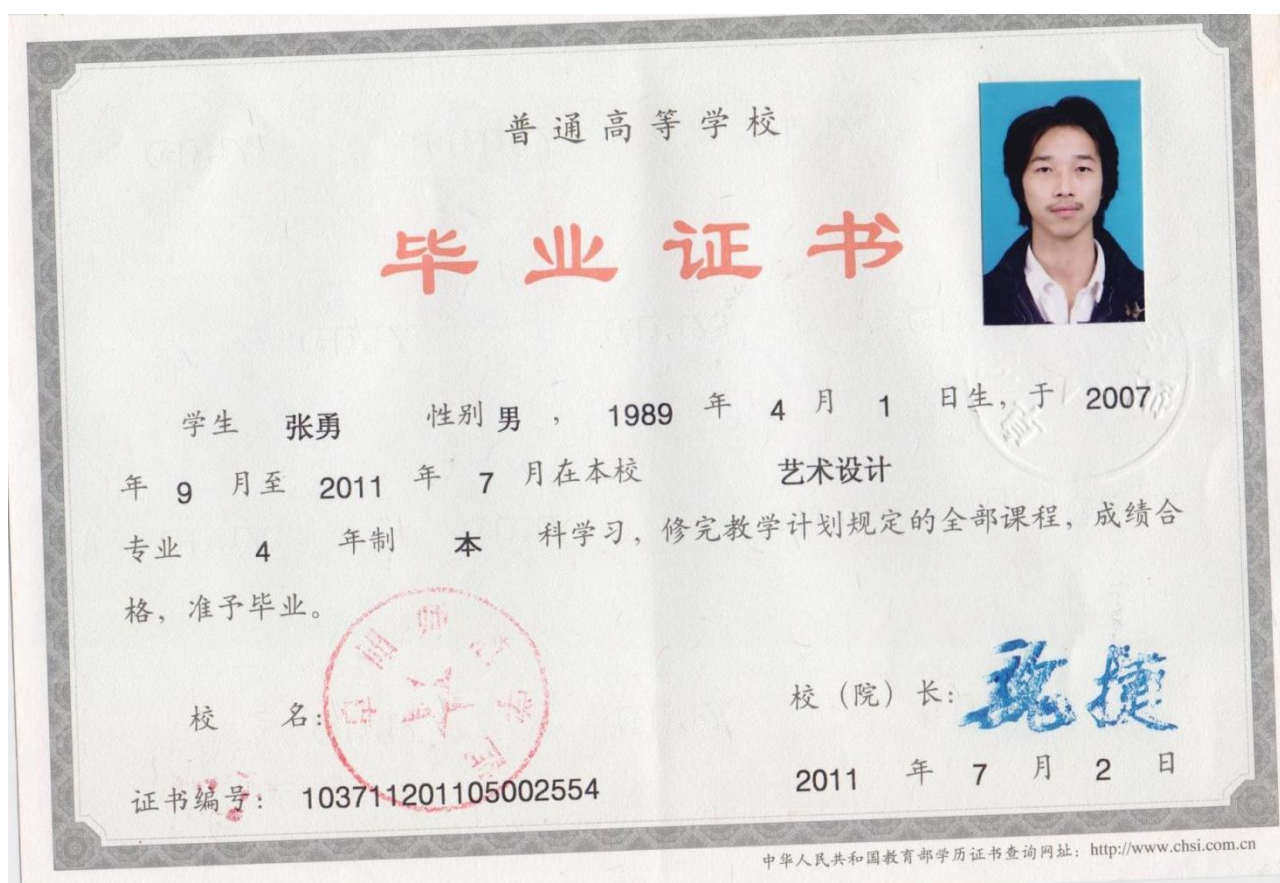 普通高等学校
毕业证书
学生 张勇 性别 男 , 1989 年 4 月 1 日生, 于 2007
年 9 月至 2011 年 7 月在本校 艺术设计
专业 4 年制 本 科学习, 修完教学计划规定的全部课程, 成绩合
格, 准予毕业。
校 名:
校 (院) 长:
2011 年 7 月 2 日
证书编号: 103711201105002554
中华人民共和国教育部学历证书查询网址: http://www.chsi.com.cn